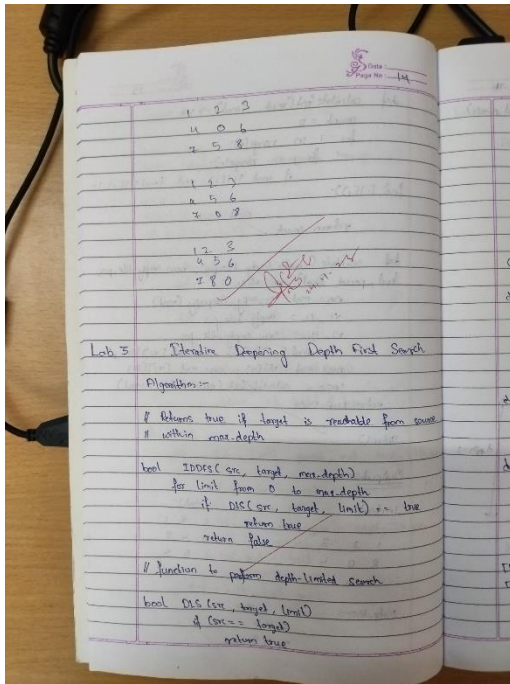 Date :
Page No : 14
1 2 3
4 0 6
7 5 8
1 2 3
4 5 6
7 0 8
1 2 3
4 5 6
7 8 0
Lab 5 Iterative Deepening Depth First Search
Algorithm:-
// Returns true if target is reachable from source
// within max-depth
bool IDDFS( src, target, max-depth)
for limit from 0 to max-depth
if DLS( src, target, limit) == true
return true
return false
// function to perform depth-limited search
bool DLS (src, target, limit)
if (src == target)
return true